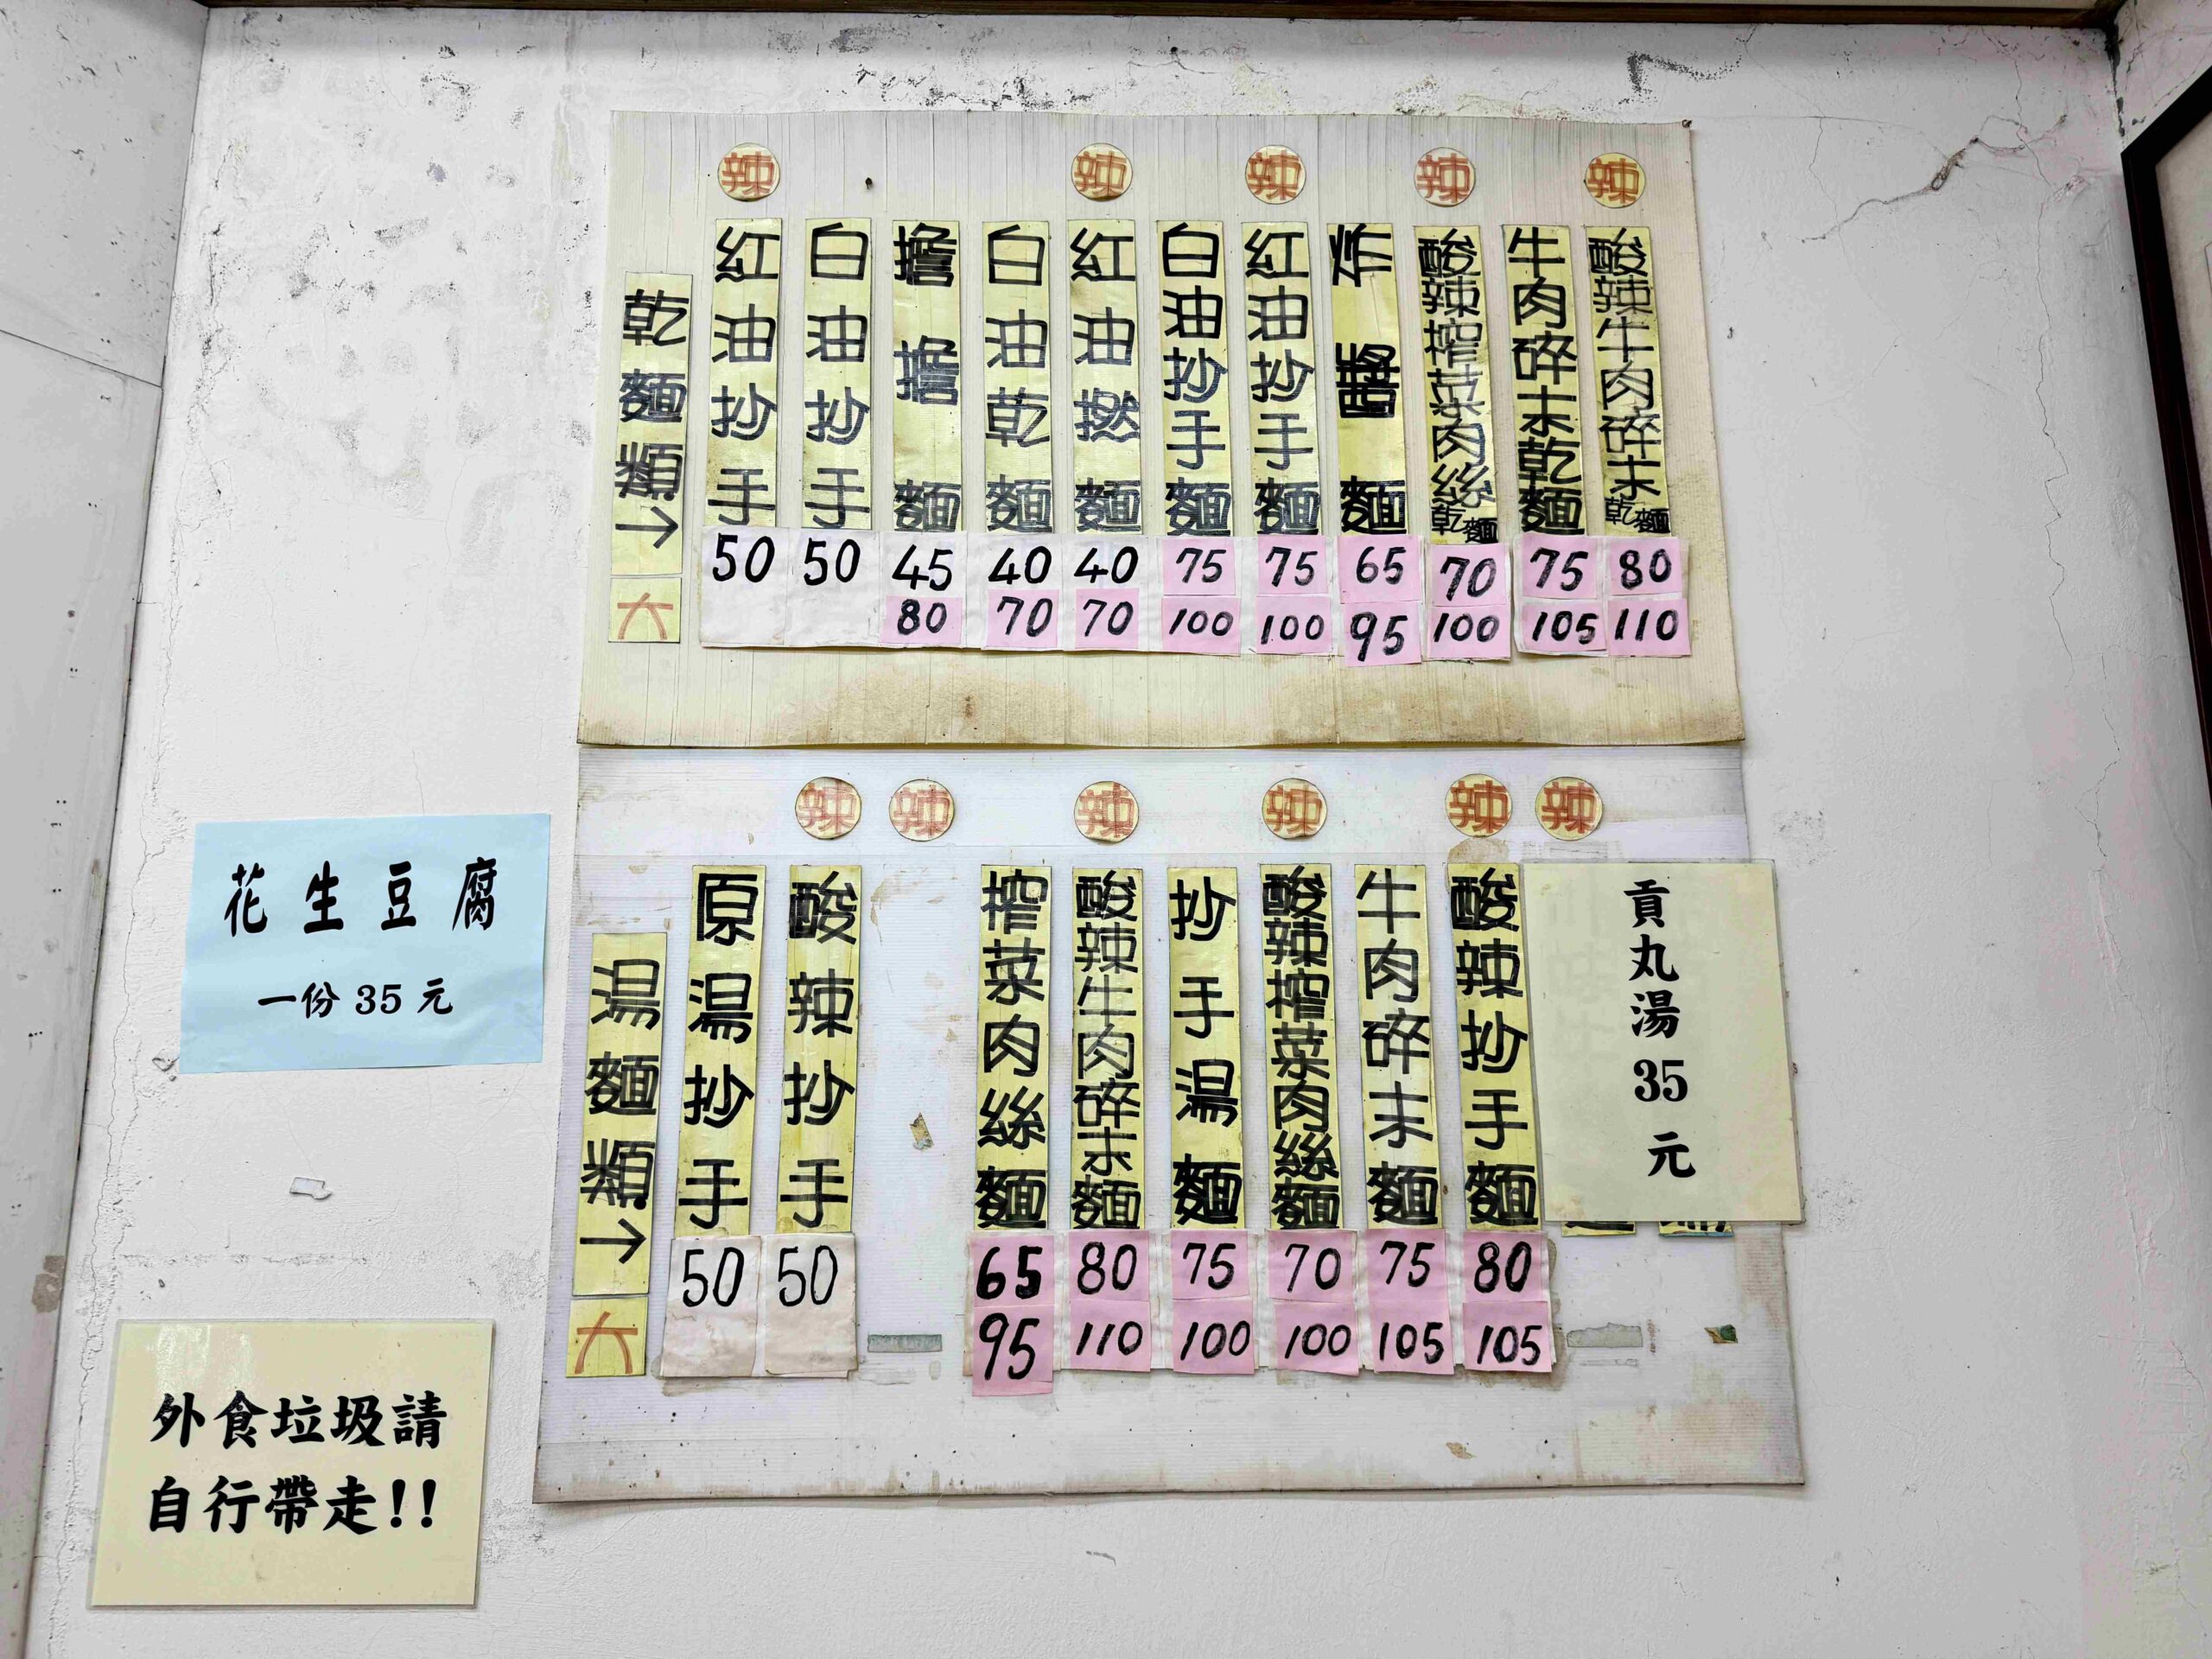 辣 辣 辣 辣 辣
乾麵類→
大
紅油抄手
50
白油抄手
50
擔擔麵
45
80
白油乾麵
40
70
紅油撚麵
40
70
白油抄手麵
75
100
紅油抄手麵
75
100
炸醬麵
65
95
酸辣榨菜肉絲乾麵
70
100
牛肉碎末乾麵
75
105
酸辣牛肉碎末乾麵
80
110
辣 辣 辣 辣 辣 辣
湯麵類→
大
原湯抄手
50
酸辣抄手
50
榨菜肉絲麵
65
95
酸辣牛肉碎末麵
80
110
抄手湯麵
75
100
酸辣榨菜肉絲麵
70
100
牛肉碎末麵
75
105
酸辣抄手麵
80
105
貢丸湯 35 元
花生豆腐
一份 35 元
外食垃圾請
自行帶走!!